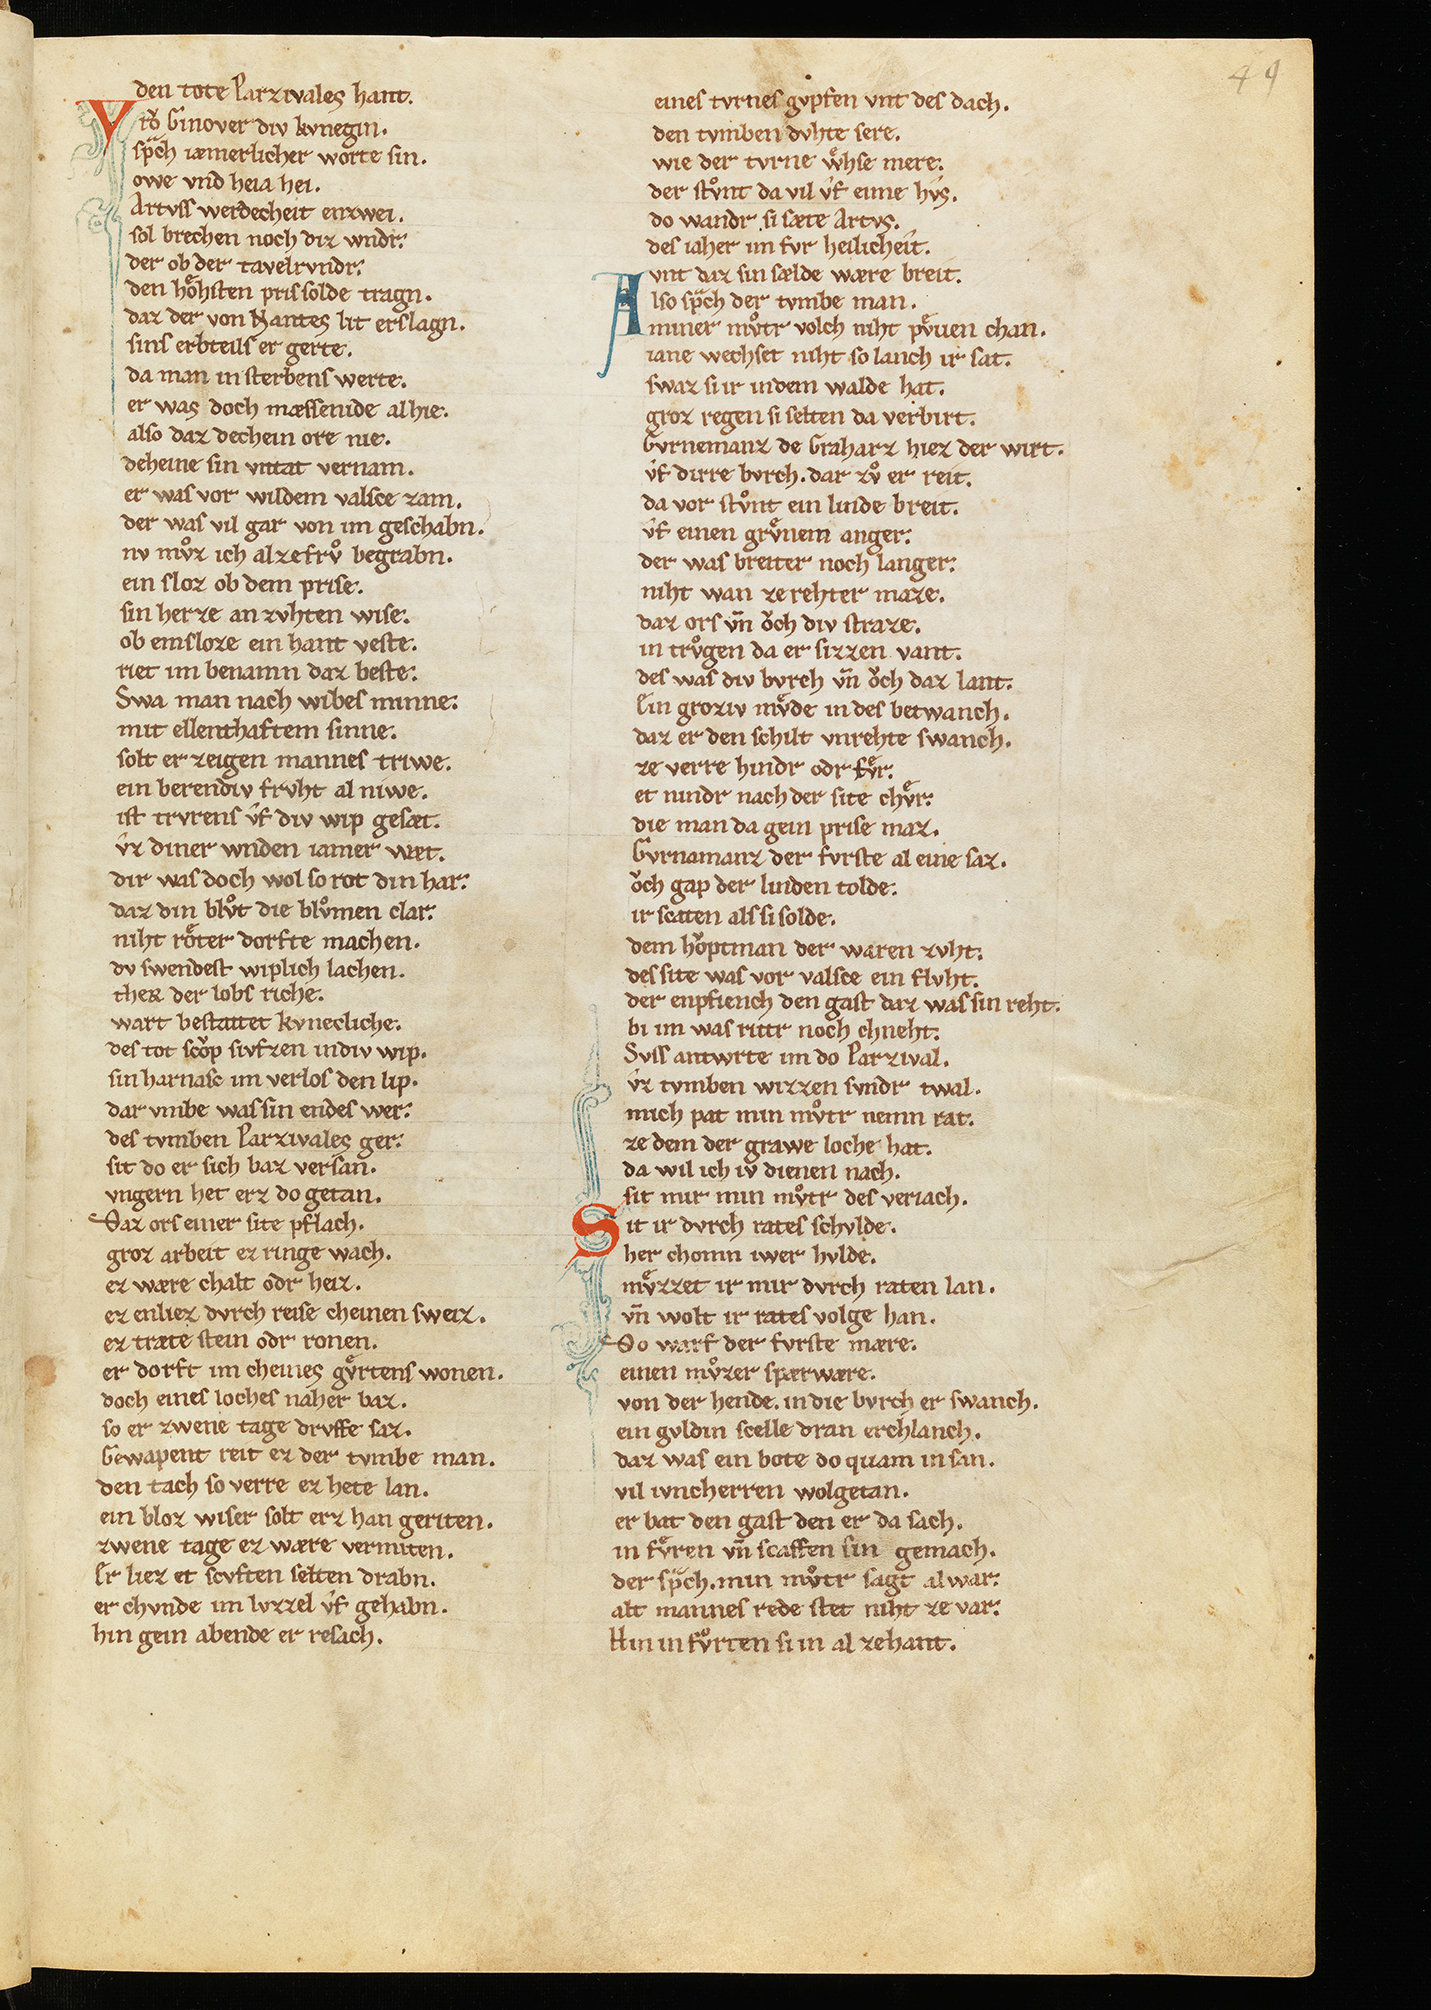 49
den tote Parzivales hant.
Vro͛ Ginover div kvnegin.
sp̄ch iæmerlicher worte sin.
owe vnd heia hei.
Artvss werdecheit enzwei.
sol brechen noch diz wndr:
der ob der tavelrvndr:
den hoͤhsten pris solde tragn.
daz der von Nantes lit erslagn.
sins erbteils er gerte.
da man in sterbens werte.
er was doch mæssenide alhie.
also daz dechein ore nie.
deheine sin vntat vernam.
er was vor wildem valsce zam.
der was vil gar von im geschabn.
nv mvͦz ich alzefrvͦ begrabn.
ein sloz ob dem prise.
sin herze an zvhten wise:
ob emsloze ein hant veste.
riet im benamn daz beste:
Swa man nach wibes minne:
mit ellenthaftem sinne:
solt er zeigen mannes triwe.
ein berendiv frvht al niwe.
ist trvrens v̂f div wip gesæt.
v̂z diner wnden iamer wæt.
dir was doch wol so rot din har:
daz din blvͦt die blvͦmen clar:
niht roͤter dorfte machen.
dv swendest wiplich lachen.
ther der lobs riche:
wart bestattet kvnecliche:
des tot scoͮp sivfzen indiv wip.
sin harnasc im verlos den lip.
dar vmbe was sin endes wer:
des tvmben Parzivales ger:
sit do er sich baz versan.
vngern het erz do getan.
Daz ors einer site pflach.
groz arbeit ez ringe wach.
ez wære chalt odr heiz.
ez enliez dvrch reise cheinen sweiz.
ez træte stein odr ronen.
er dorft im cheines gvͤrtens wonen.
doch eines loches naher baz.
so er zwene tage drvffe saz.
Gewapent reit ez der tvmbe man.
den tach so verre ez hete lan.
ein bloz wiser solt erz han geriten.
zwene tage ez wære vermiten.
Er liez et scvften selten drabn.
er chvnde im lvzzel v̂f gehabn.
hin gein abende er resach.
eines tvrnes gvpfen vnt des dach.
den tvmben dvhte sere.
wie der tvrne wͤhse mere:
der stvͦnt da vil v̂f eime hv̂s.
do wandr si sæte Artvs.
des iaher im fvr heilicheit.
vnt daz sin sælde wære breit.
Also sp̄ch der tvmbe man.
miner mvͦtr volch niht pvͤuen chan.
iane wechset niht so lanch ir sat.
swaz si ir indem walde hat.
groz regen si selten da verbirt.
Gvrnemanz de Graharz hiez der wirt.
v̂f dirre bvrch. dar zvͦ er reit.
da vor stvͦnt ein linde breit.
v̂f einen grvͤnem anger:
der was breiter noch langer:
niht wan ze rehter maze.
daz ors vn̄ oͮch div straze.
in trvͦgen da er sizzen vant.
des was div bvrch vn̄ oͮch daz lant.
Ein groziv mvͤde in des betwanch.
daz er den schilt vnrehte swanch.
ze verre hindr odr fvͤr.
et nindr nach der site chvͤr:
die man da gein prise maz.
Gvrnamanz der fvrste al eine saz.
oͮch gap der linden tolde:
ir scaten als si solde.
dem hoͮptman der waren zvht:
des site was vor valsce ein flvht.
der enpfiench den gast daz was sin reht.
bi im was rittr noch chneht:
Svss antwrte im do Parzival.
v̂z tvmben wizzen svndr twal.
mich pat min mvͦtr nemn rat.
ze dem der grawe loche hat.
da wil ich iv dienen nach.
sit mir min mvͦtr des veriach.
Sit ir dvrch rates schvlde.
her chomn iwer hvlde.
mvͤzzet ir mir dvrch raten lan.
vn̄ wolt ir rates volge han.
Do warf der fvrste mære.
einen mvͦzer spærwære.
von der hende. in die bvrch er swanch.
ein gvldin scelle dran erchlanch.
daz was ein bote do quam in san.
vil ivncherren wolgetan.
er bat den gast den er da sach.
in fvͤren vn̄ scaffen sin gemach.
der sp̄ch. min mvͦtr sagt al war:
alt mannes rede stet niht ze var:
Hin in fvͦrten si in al zehant.